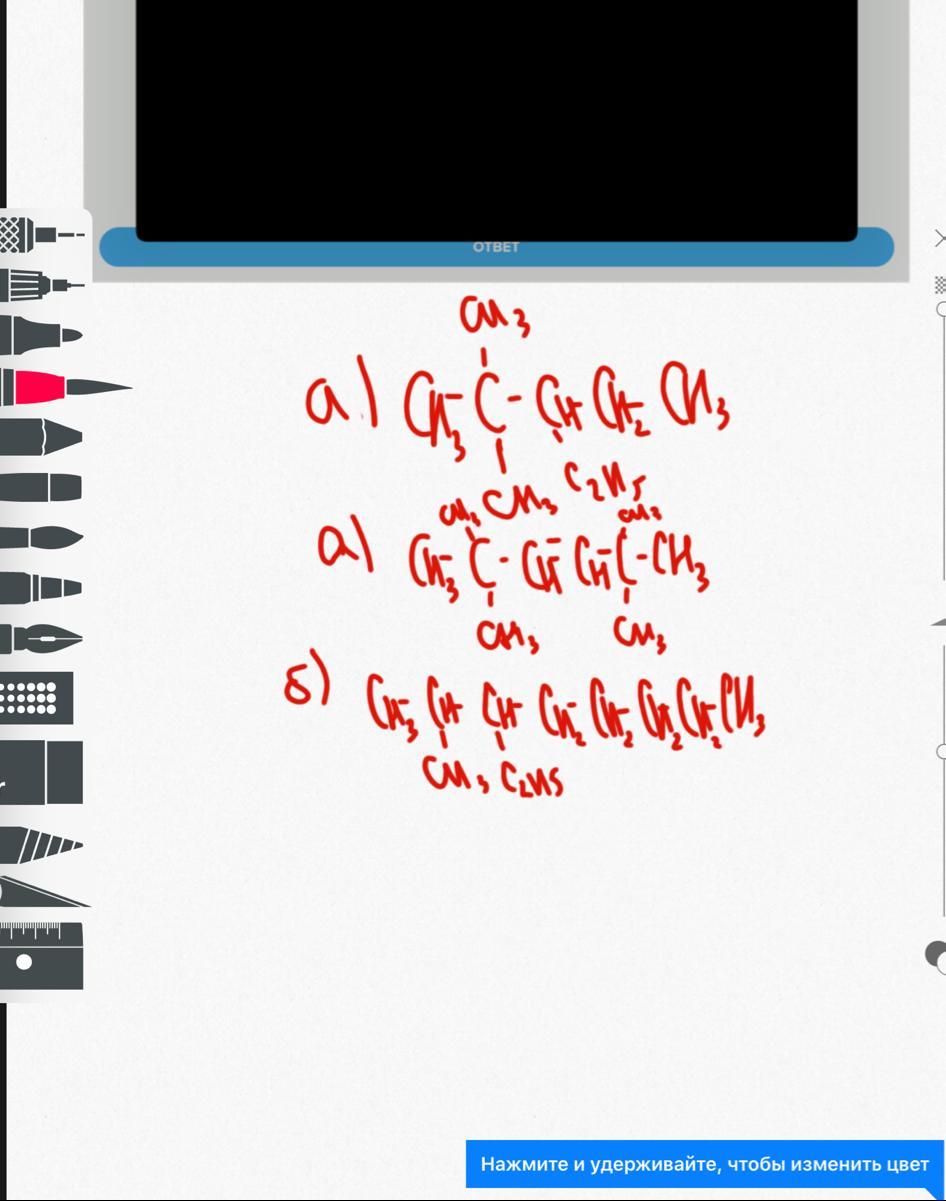 ОТВЕТ
CH3
а) CH3-C-CH CH2 CH3
CH3 C2H5
CH3 CH3
а) CH3-C-CH-CH-C-CH3
CH3 CH3
б) CH3-CH CH CH2-CH2 CH2 CH2 CH3
CH3 C2H5
Нажмите и удерживайте, чтобы изменить цвет